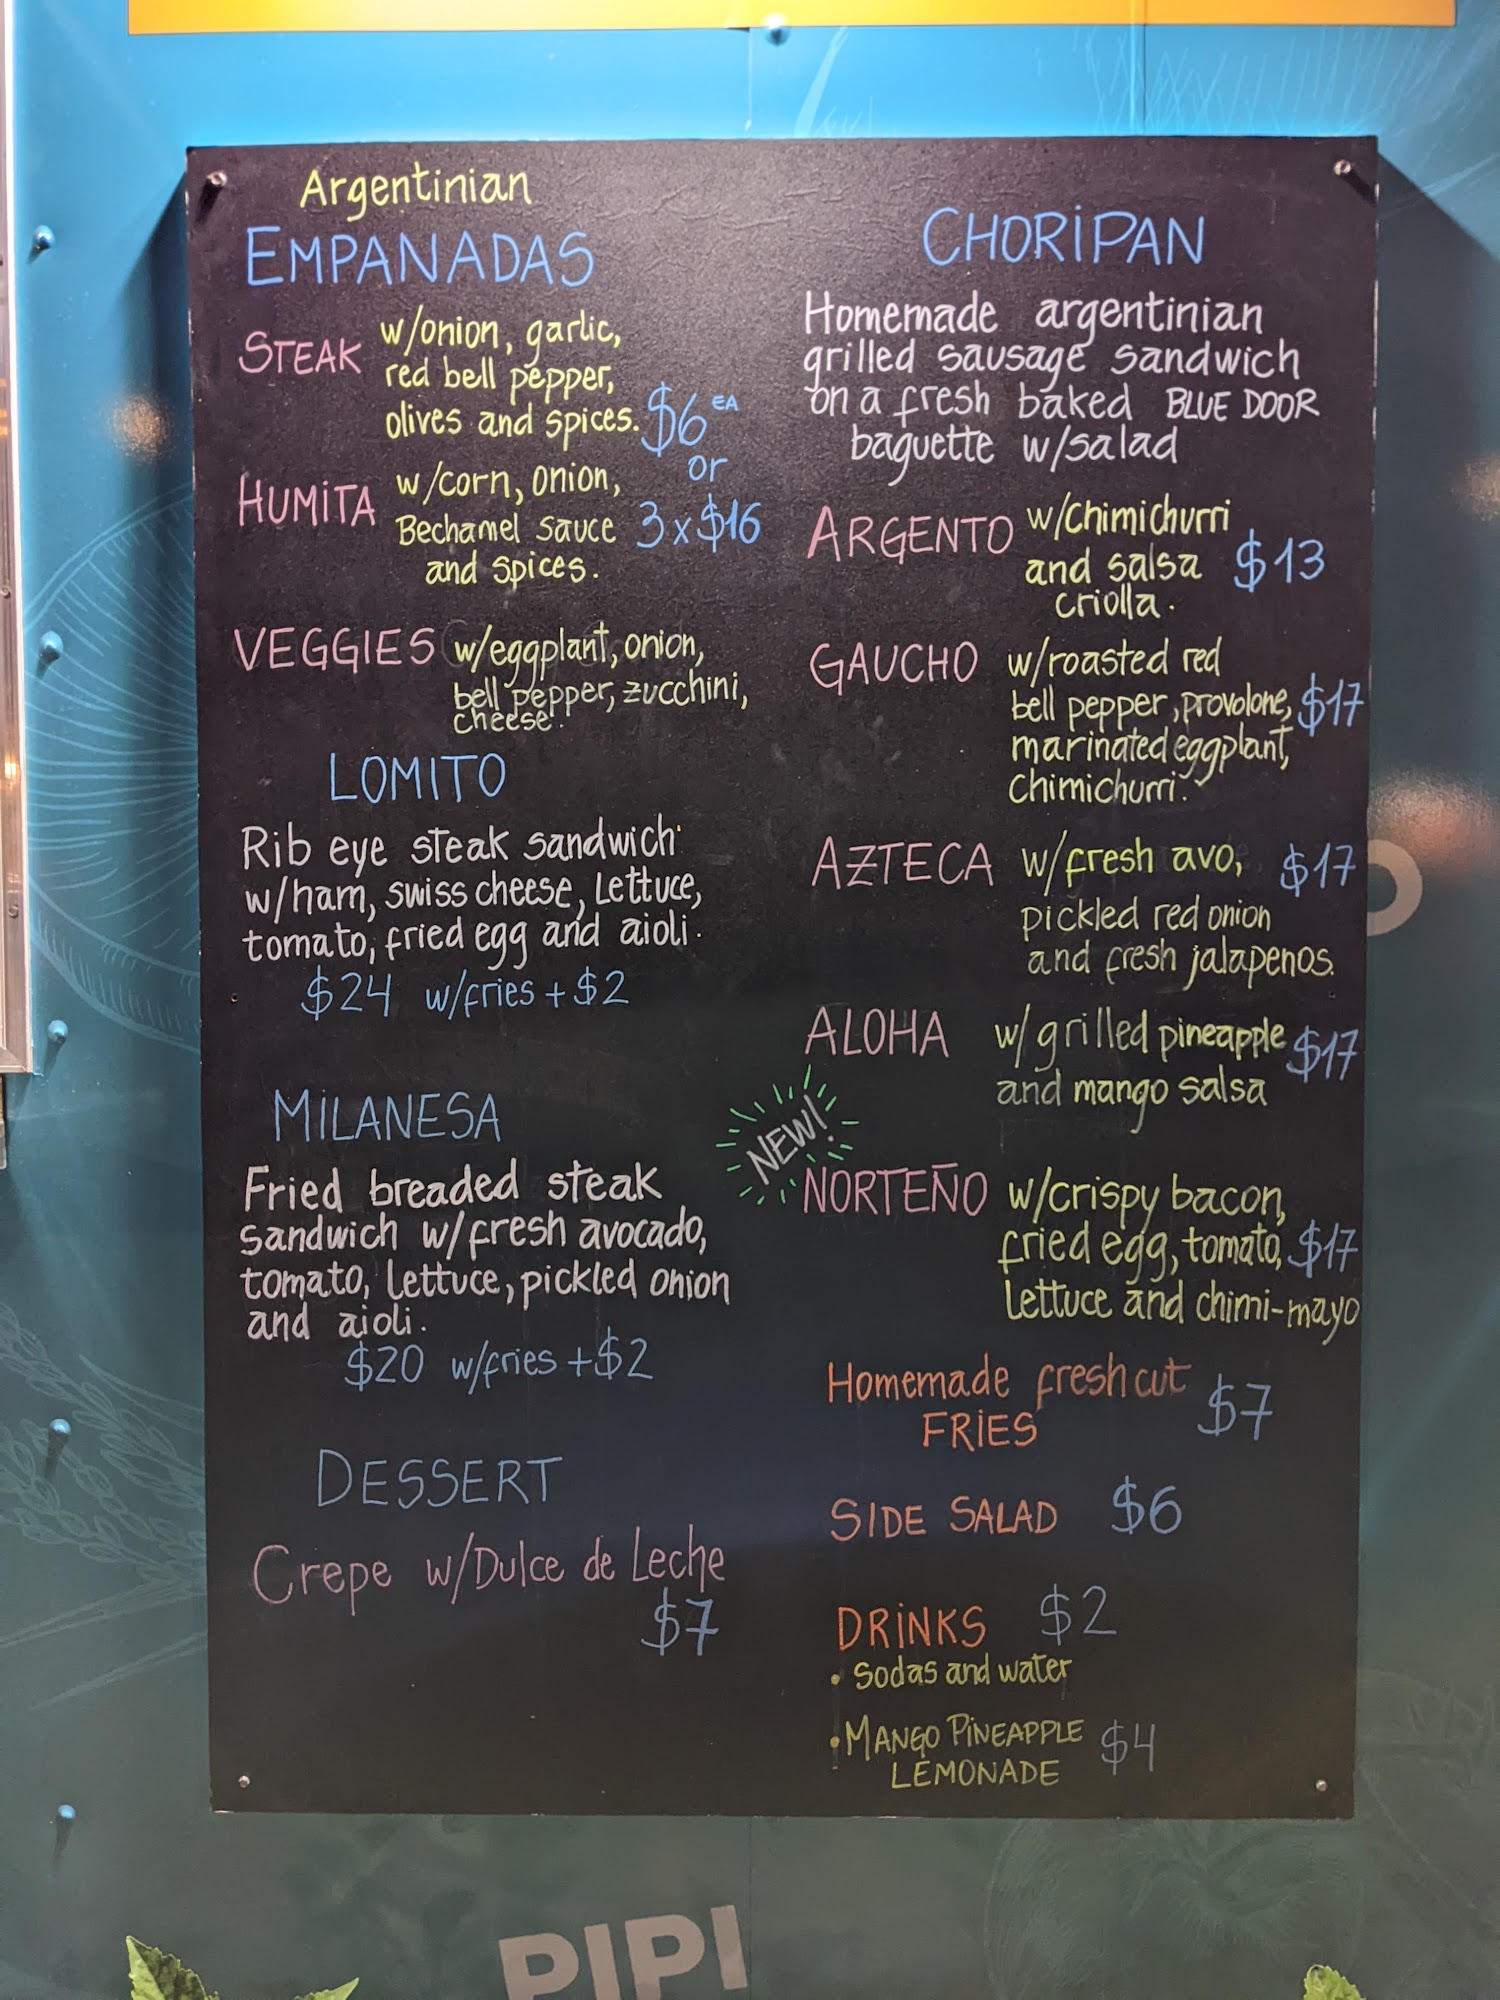 Argentinian
EMPANADAS
STEAK w/onion, garlic,
red bell pepper,
olives and spices.
$6 EA
or
3 x $16
HUMITA w/corn, onion,
Bechamel sauce
and spices.
VEGGIES w/eggplant, onion,
bell pepper, zucchini,
cheese.
LOMITO
Rib eye steak sandwich
w/ham, swiss cheese, Lettuce,
tomato, fried egg and aioli.
$24 w/fries + $2
MILANESA
Fried breaded steak
sandwich w/fresh avocado,
tomato, Lettuce, pickled onion
and aioli.
$20 w/fries + $2
DESSERT
Crepe w/Dulce de Leche
$7
CHORIPAN
Homemade argentinian
grilled sausage sandwich
on a fresh baked BLUE DOOR
baguette w/salad
ARGENTO w/chimichurri
and salsa $13
criolla.
GAUCHO w/roasted red
bell pepper, provolone, $17
marinated eggplant,
chimichurri.
AZTECA w/fresh avo, $17
pickled red onion
and fresh jalapenos.
ALOHA w/grilled pineapple $17
and mango salsa
NEW!
NORTEÑO w/crispy bacon,
fried egg, tomato, $17
Lettuce and chimi-mayo
Homemade fresh cut $7
FRIES
SIDE SALAD $6
DRINKS $2
• Sodas and water
• MANGO PINEAPPLE $4
LEMONADE
PIPI